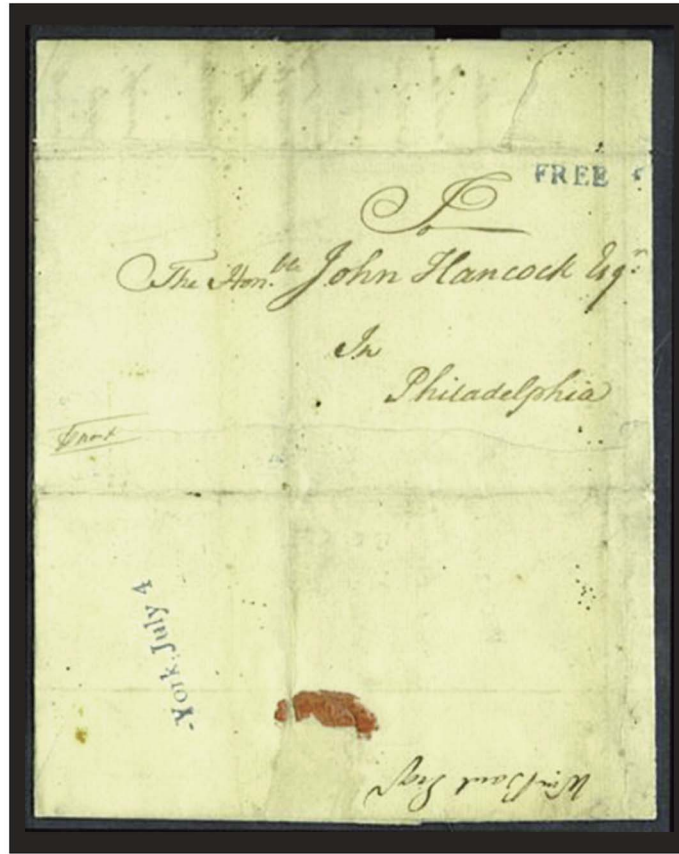 FREE
To
The Hon.ble John Hancock Esqr.
In
Philadelphia
-York: July 4
Esqr